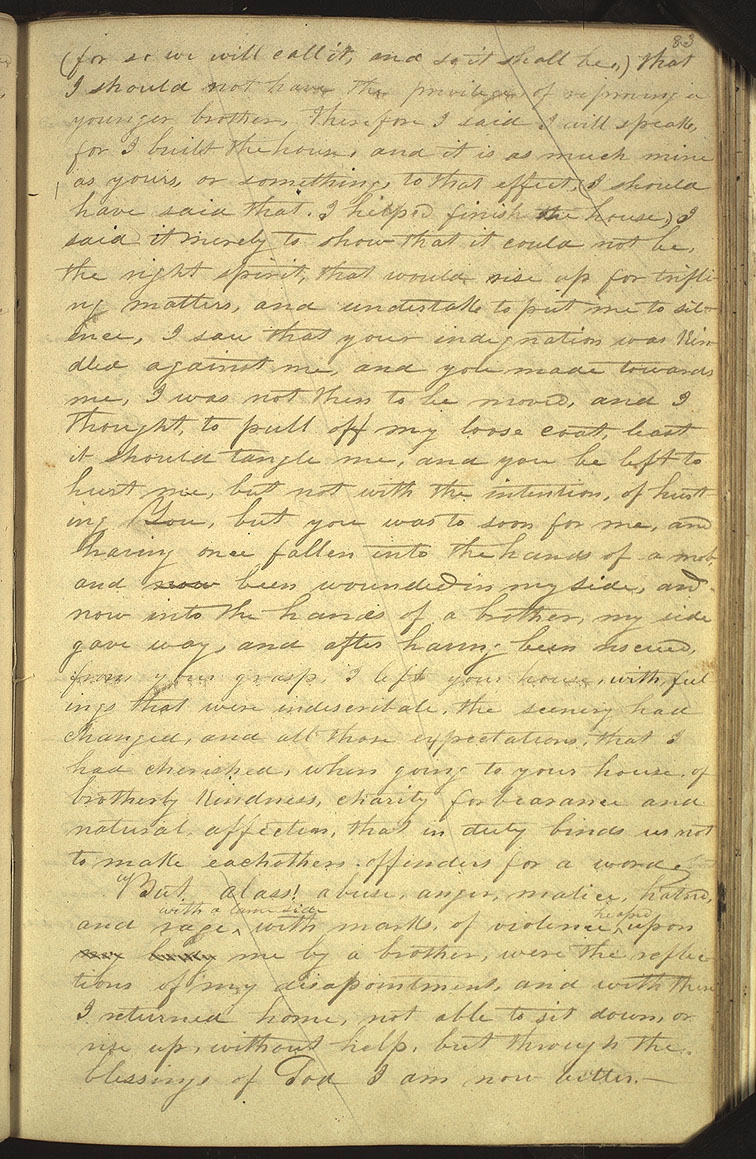 83
(for so we will call it, and so it shall be,) that
I should not have the privilege of reproving a
younger brother, therefore I said I will speak,
for I built the house, and it is as much mine
as yours, or something, to that effect, (I should
have said that. I helped finish the house,) I
said it merely to show that it could not be,
the right spirit, that would rise up for trifli-
ng matters, and undertake to put me to sil-
ence, I saw that your indignation was kin-
dled against me, and you made towards
me, I was not then to be moved, and I
thought, to pull off my loose coat, least
it should tangle me, and you be left to
hurt me, but not with the intention, of hurt-
ing You, but you was to soon for me, and
having once fallen into the hands of a mob,
and now been wounded in my side, and
now into the hands of a brother, my side
gave way, and after having been rescued,
from your grasp, I left your house, with feel
ings that were indescribale, the scenery had
changed, and all those expectations, that I
had cherished, when going to your house, of
brotherly kindness, charity forbearance and
natural affection, that in duty binds us not
to make eachothers offenders for a word.
But alass! abuse, anger, malice, hatred,
with a lame side
and rage, with marks, of violence, heaped upon
my body me by a brother, were the reflec
tions of my disapointment, and with these
I returned home, not able to sit down, or
rise up, without help, but through the
blessings of God I am now better.—